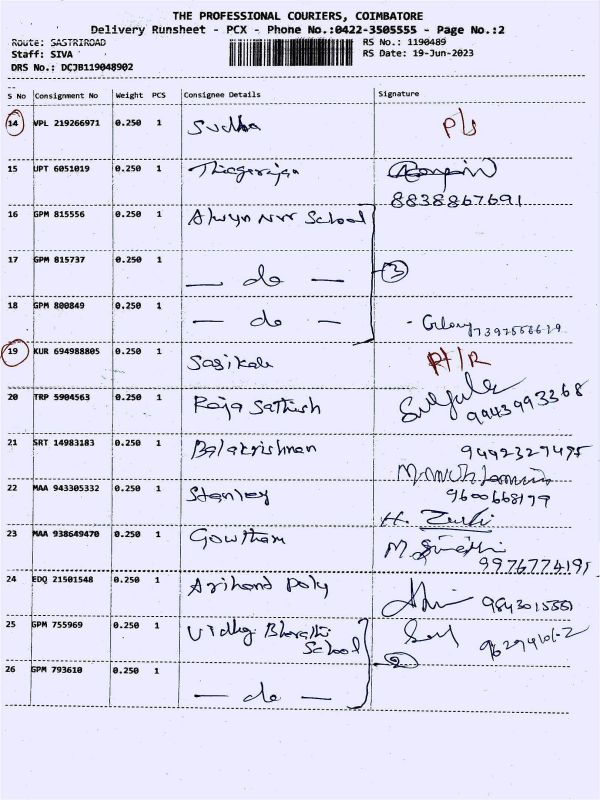 THE PROFESSIONAL COURIERS, COIMBATORE
Delivery Runsheet - PCX - Phone No.:0422-3505555 - Page No.:2
Route: SASTRIROAD
RS No.: 1190489
Staff: SIVA
RS Date: 19-Jun-2023
DRS No.: DCJB119048902
S No Consignment No Weight PCS Consignee Details Signature
14 VPL 219266971 0.250 1 Sudha
15 UPT 6051019 0.250 1 Thiagarajan
8838867691
16 GPM 815556 0.250 1 Alwyn Nur School
17 GPM 815737 0.250 1 — do — 3
18 GPM 800849 0.250 1 — do —
19 KUR 694988805 0.250 1 Sasikala
20 TRP 5904563 0.250 1 Raja Sathish
9943993368
21 SRT 14983183 0.250 1 Balakrishnan
22 MAA 943305332 0.250 1 Stanley
23 MAA 938649470 0.250 1 Gowtham
9976774195
24 EDQ 21501548 0.250 1 Arihant Poly
25 GPM 755969 0.250 1 Vidhy Bharathi
School
2
26 GPM 793610 0.250 1 — do —